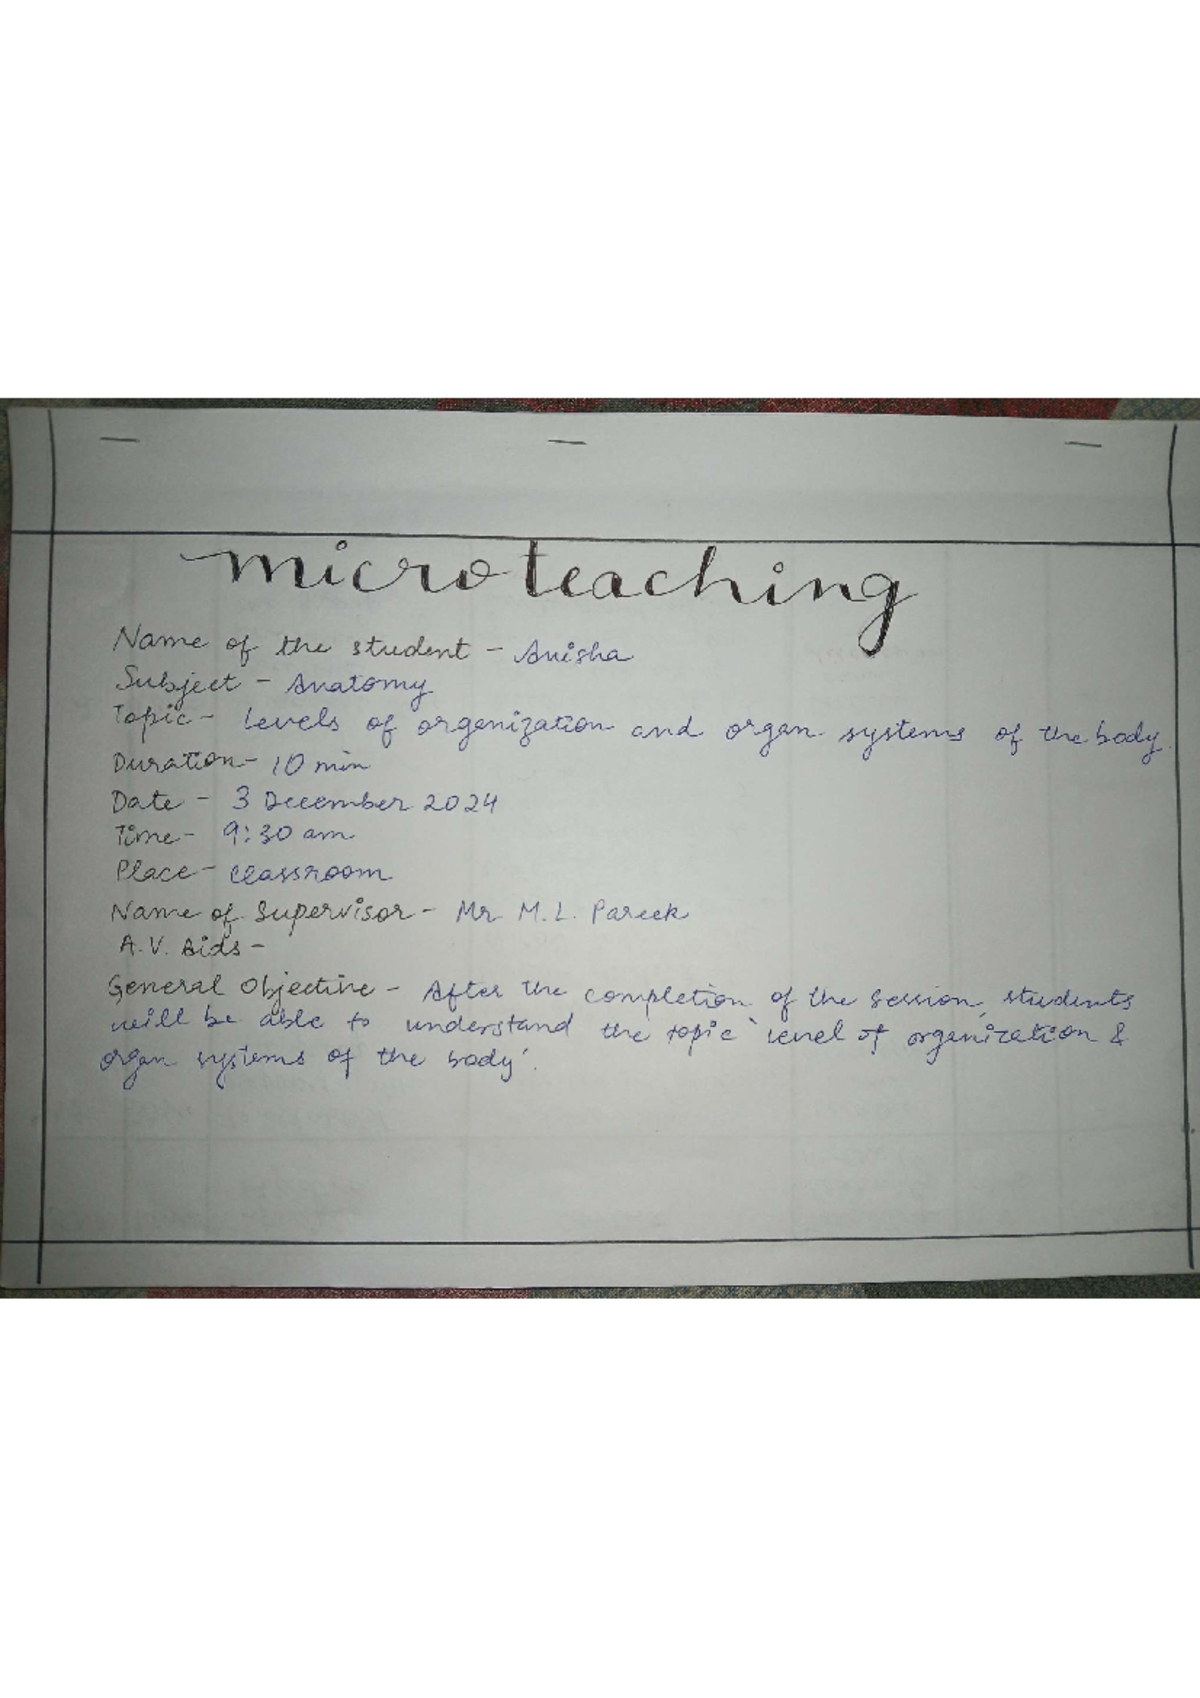 microteaching
Name of the student - Anisha
Subject - Anatomy
Topic - Levels of organization and organ systems of the body
Duration - 10 min
Date - 3 December 2024
Time - 9:30 am
Place - Classroom
Name of Supervisor - Mr. M. L. Pareek
A.V. Aids -
General Objective - After the completion of the session, students
will be able to understand the topic 'level of organization &
organ systems of the body'.